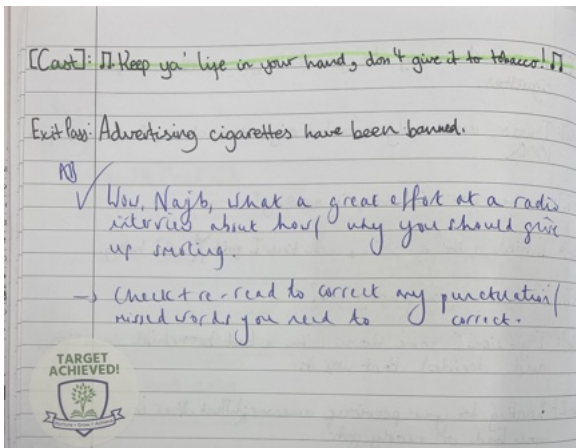 [Cast]: ♫ Keep ya' life in your hand, don't give it to tobacco! ♫
Exit Pass: Advertising cigarettes have been banned.
Wow, Najb, what a great effort at a radio
interview about how/ why you should give
up smoking.
→ Check + re-read to correct any punctuation/
missed words you need to correct.
TARGET
ACHIEVED!